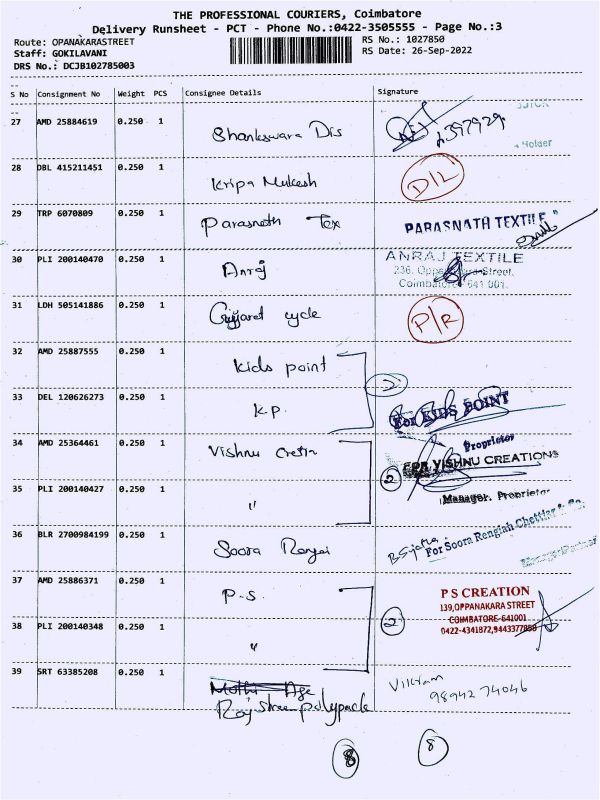 THE PROFESSIONAL COURIERS, Coimbatore
Delivery Runsheet - PCT - Phone No.:0422-3505555 - Page No.:3
Route: OPANAKARASTREET
RS No.: 1027850
Staff: GOKILAVANI
RS Date: 26-Sep-2022
DRS No.: DCJB102785003
S No Consignment No Weight PCS Consignee Details Signature
27 AMD 25884619 0.250 1 Shankswara Dis
Holder
28 DBL 415211451 0.250 1 Kripa Mukesh D/L
29 TRP 6070809 0.250 1 Parasnath Tex PARASNATH TEXTILE
30 PLI 200140470 0.250 1 Anraj ANRAJ TEXTILE
236, Oppanakara Street,
Coimbatore - 641 001.
31 LDH 505141886 0.250 1 Gujjarat cycle P/R
32 AMD 25887555 0.250 1 Kids point 2
33 DEL 120626273 0.250 1 K.P. For KIDS POINT
Proprietor
34 AMD 25364461 0.250 1 Vishnu Cretin FOR VISHNU CREATIONS
2
35 PLI 200140427 0.250 1 " Manager. Proprietor
36 BLR 2700984199 0.250 1 Soora Rengai For Soora Rengiah Chettiar & Co.
Manager/Partner
37 AMD 25886371 0.250 1 P.S. P S CREATION
139,OPPANAKARA STREET
2 COIMBATORE-641001
38 PLI 200140348 0.250 1 " 0422-4341872,9443377888
39 SRT 63385208 0.250 1 Vikram
Raj Shree polypack 98942 74046
8 8